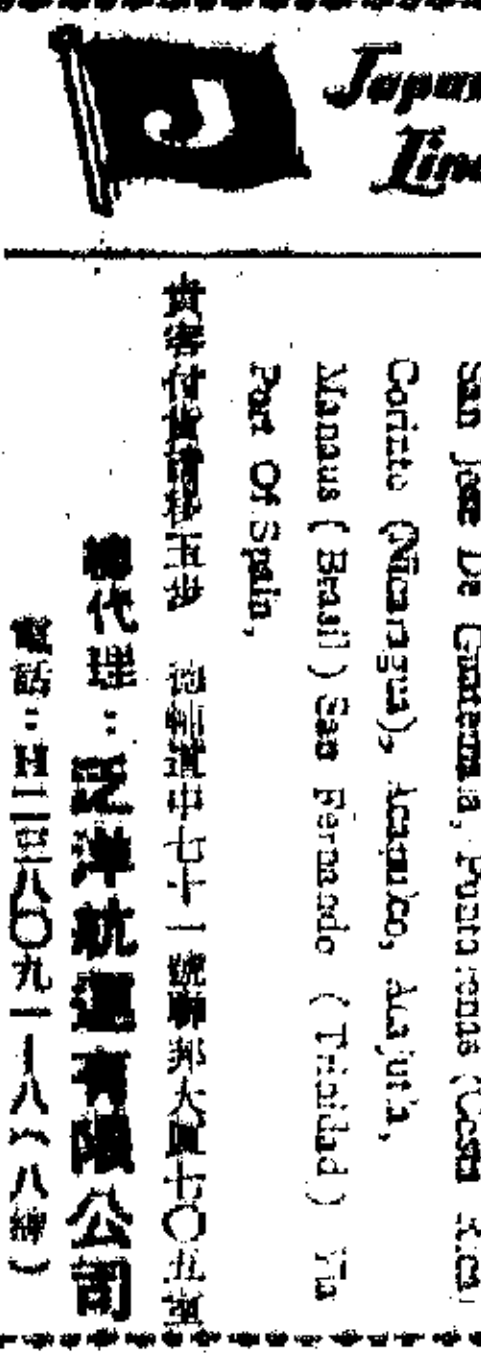 Japan
Line
San Jose De Guatemala, Puntarenas (Costa Rica)
Corinto (Nicaragua), Acapulco, Acajutla,
Manaus (Brasil) San Fernando (Trinidad) Via
Port Of Spain,
貴客付貨請移玉步 德輔道中七十一號聯邦大廈七〇五室
總代理：泛洋航運有限公司
電話：八〇九一一八（八線）